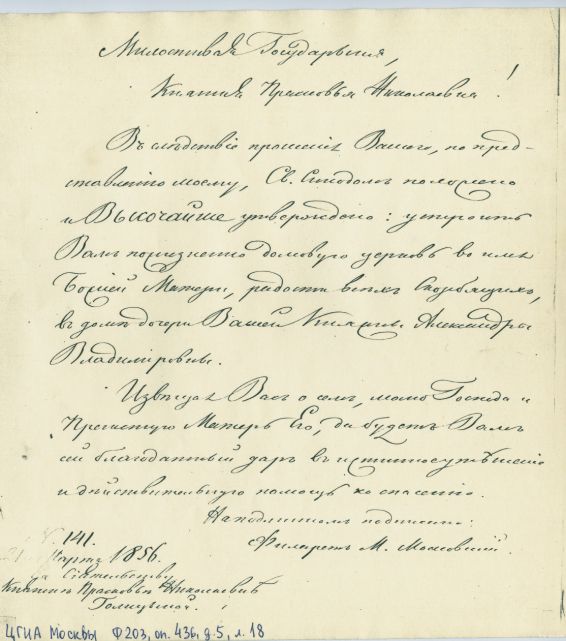 Милостивая Государыня,
Княгиня Прасковья Николаевна!
Въ следствіе прошенія Вашего, по пред-
ставленію моему, Св. Синодомъ положено
и Высочайше утверждено: устроить
Вамъ пожизненно домовую церковь во имя
Божіей Матери, радости всѣхъ Скорбящихъ,
въ домѣ дочери Вашей Княжны Александры
Владиміровны.
Извѣщая Васъ о семъ, молю Господа и
Пречистую Матерь Его, да будетъ Вамъ
сей благодатный даръ въ истинное утѣшеніе
и дѣйствительную помощь ко спасенію.
На подлинномъ подписано:
Филаретъ М. Московскій.
№ 141.
Марта 1856.
Ея Сіятельству
Княгинѣ Прасковьѣ Николаевнѣ
Голицыной.
ЦГИА Москвы Ф203, оп. 436, д. 5, л. 18